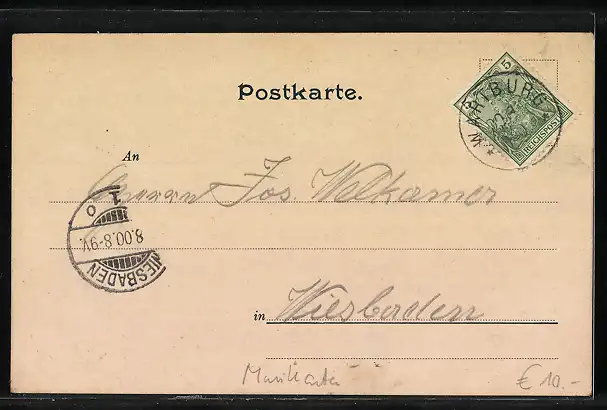 Postkarte.
5
REICHSPOST
WARTBURG
An
Herrn Jos. Volkamer
WIESBADEN
8.00.8-9V.
1
o
in Wiesbaden
Musikkarten
€ 10.-